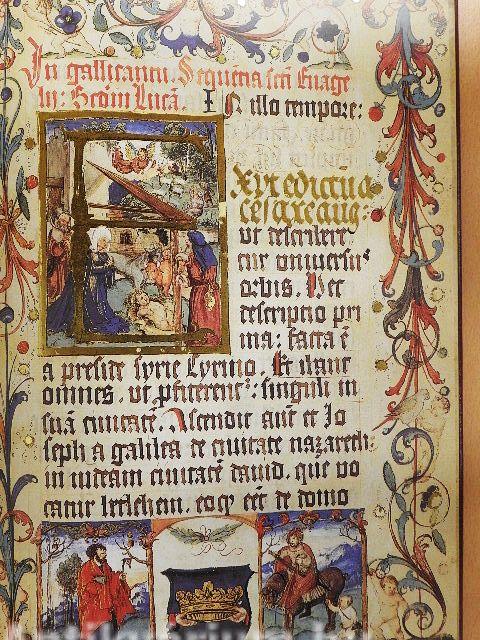 In gallicantu. Sequētia scti Euāge
lii: Scdm Lucā. IN illo tempore:
Exyt edictuʒ a
cesare aug:
ut describere
tur uniuersu⁹
orbis. Hec
descriptio pri
ma: facta ē
a preside syrie Cyrino. Et ibant
omnes. ut pfiterent²: singuli in
suā ciuitatē. Ascendit aūt et Io
seph a galilea de ciuitate nazareth:
in iudeam ciuitatē dauid. que vo
catur bethlehem. eoq eēt de domo